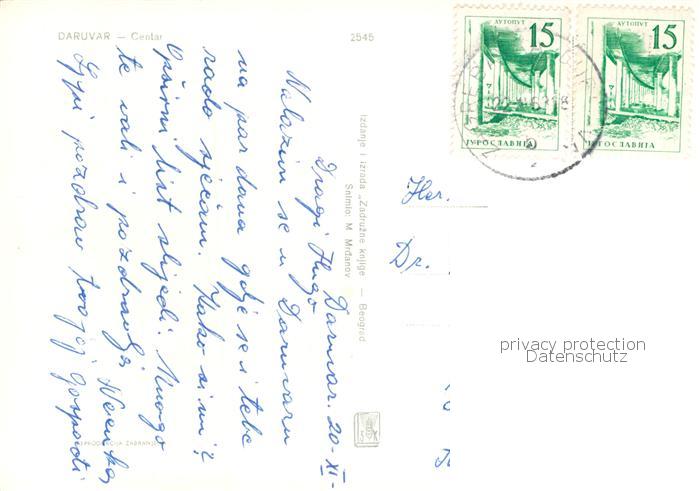 DARUVAR — Centar
2545
Daruvar. 20-XI-
Dragi Hugo
Nalazim se u Daruvaru
na par dana gdje se i tebe
rado sjećam. Kako si mi?
Opširni list slijedi. Mnogo
te voli i pozdravlja
Lijepi pozdrav tvojoj Gospođi
Izdanje i izrada „Zadružne knjige — Beograd
Snimio: M. Mrđanov
REPRODUKCIJA ZABRANJENA
АУТОПУТ
15
ЈУГОСЛАВИЈА
АУТОПУТ
15
ЈУГОСЛАВИЈА
ZAGREB
Her.
Dr.
privacy protection
Datenschutz